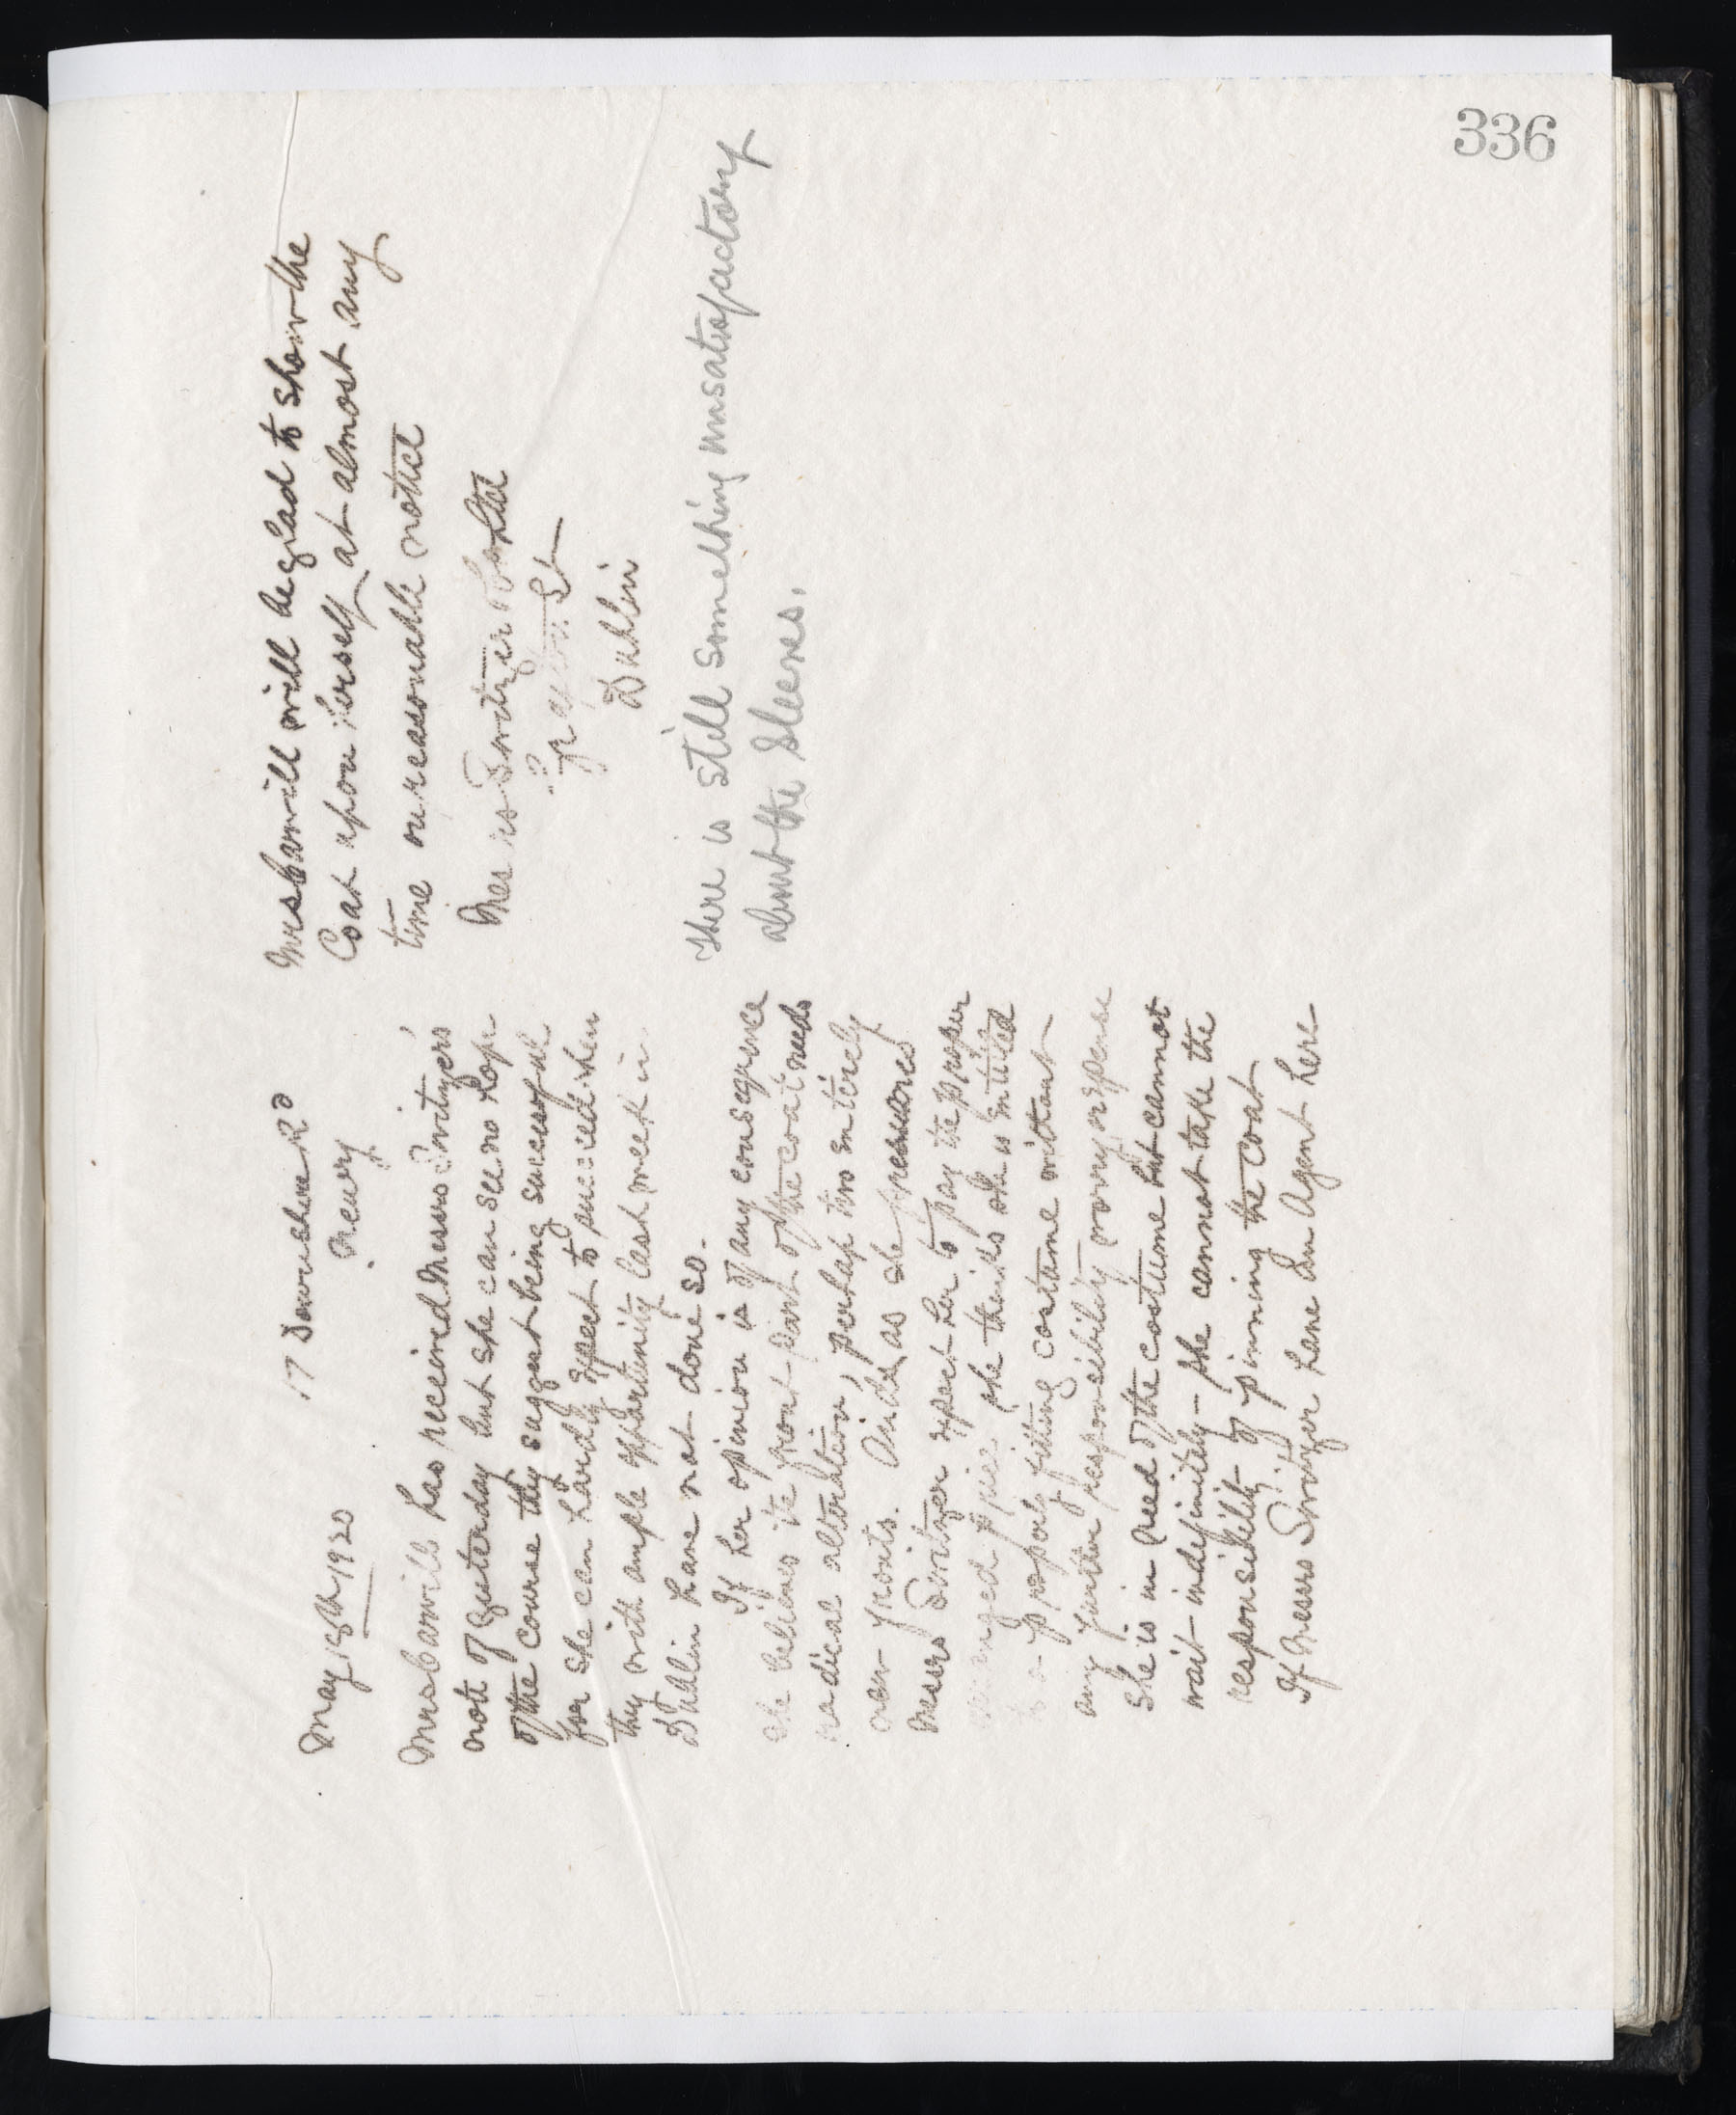 336
May 18th 1920
17 Downshire Rd
Newry
Mrs Barwill has received Messrs Switzers'
note of yesterday but she can see no hope
of the course they suggest being successful
for she can hardly expect to succeed when
they with ample opportunity last week in
Dublin have not done so.
If her opinion is of any consequence
she believes the front part of the coat needs
radical alteration, perhaps two entirely
new fronts. And, as she presumes
Messrs Switzer expect her to pay the proper
arranged price she thinks she is entitled
to a properly fitting costume without
any further responsibility worry or expense
She is in need of the costume but cannot
wait indefinitely - she cannot take the
responsibility of pinning the coat
If Messrs Switzer have an Agent here
Mrs Barwill will be glad to show the
Coat upon herself at almost any
time on reasonable notice
Messrs Switzer & Co Ltd
Grafton St
Dublin
There is still something unsatisfactory
about the sleeves.